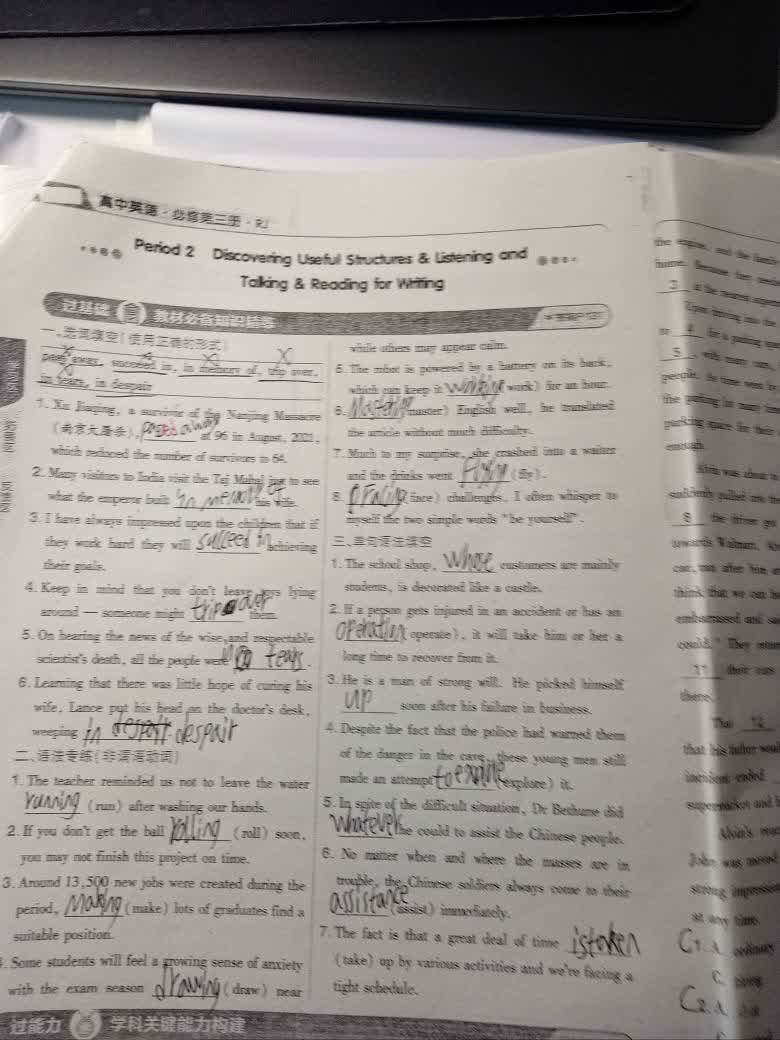 高中英语·必修第三册·RJ
Period 2 Discovering Useful Structures & Listening and
Talking & Reading for Writing
过基础 教材必备知识精练
一、选词填空(使用正确的形式)
pass away, succeed in, in memory of, trip over,
in tears, in despair
1. Xu Jiaqing, a survivor of the Nanjing Massacre
(南京大屠杀), passed away at 96 in August, 2021,
which reduced the number of survivors to 64.
2. Many visitors to India visit the Taj Mahal just to see
what the emperor built in memory of his wife.
3. I have always impressed upon the children that if
they work hard they will succeed in achieving
their goals.
4. Keep in mind that you don't leave toys lying
around — someone might trip over them.
5. On hearing the news of the wise and respectable
scientist's death, all the people were in tears.
6. Learning that there was little hope of curing his
wife, Lance put his head on the doctor's desk,
weeping in despair
二、语法专练(非谓语动词)
1. The teacher reminded us not to leave the water
running (run) after washing our hands.
2. If you don't get the ball rolling (roll) soon,
you may not finish this project on time.
3. Around 13,500 new jobs were created during the
period, making (make) lots of graduates find a
suitable position.
. Some students will feel a growing sense of anxiety
with the exam season drawing (draw) near
while others may appear calm.
5. The robot is powered by a battery on its back,
which can keep it working (work) for an hour.
6. Mastering (master) English well, he translated
the article without much difficulty.
7. Much to my surprise, she crashed into a waiter
and the drinks went flying (fly).
8. Facing (face) challenges, I often whisper to
myself the two simple words "be yourself".
三、单句语法填空
1. The school shop, whose customers are mainly
students, is decorated like a castle.
2. If a person gets injured in an accident or has an
operation (operate), it will take him or her a
long time to recover from it.
3. He is a man of strong will. He picked himself
up soon after his failure in business.
4. Despite the fact that the police had warned them
of the danger in the cave, these young men still
made an attempt to explore (explore) it.
5. In spite of the difficult situation, Dr Bethune did
whatever he could to assist the Chinese people.
6. No matter when and where the masses are in
trouble, the Chinese soldiers always come to their
assistance (assist) immediately.
7. The fact is that a great deal of time is taken
(take) up by various activities and we're facing a
tight schedule.
过能力 学科关键能力构建
the engine, and the family
3 at the nearest
4 for a parking
5 with many cars,
people.
the parking lot many
parking space for their
enough.
Alvin was about to
suddenly pulled into the
8 the driver
towards Walmart.
car, ran after him
think that we can
embarrassed and
could." They
11 their cars
there.
That 12
that his father
incident ended
supermarket and
Alvin's
John was moved
strong impression
at any time.
C1. A. ordinary
C.
C2. A.